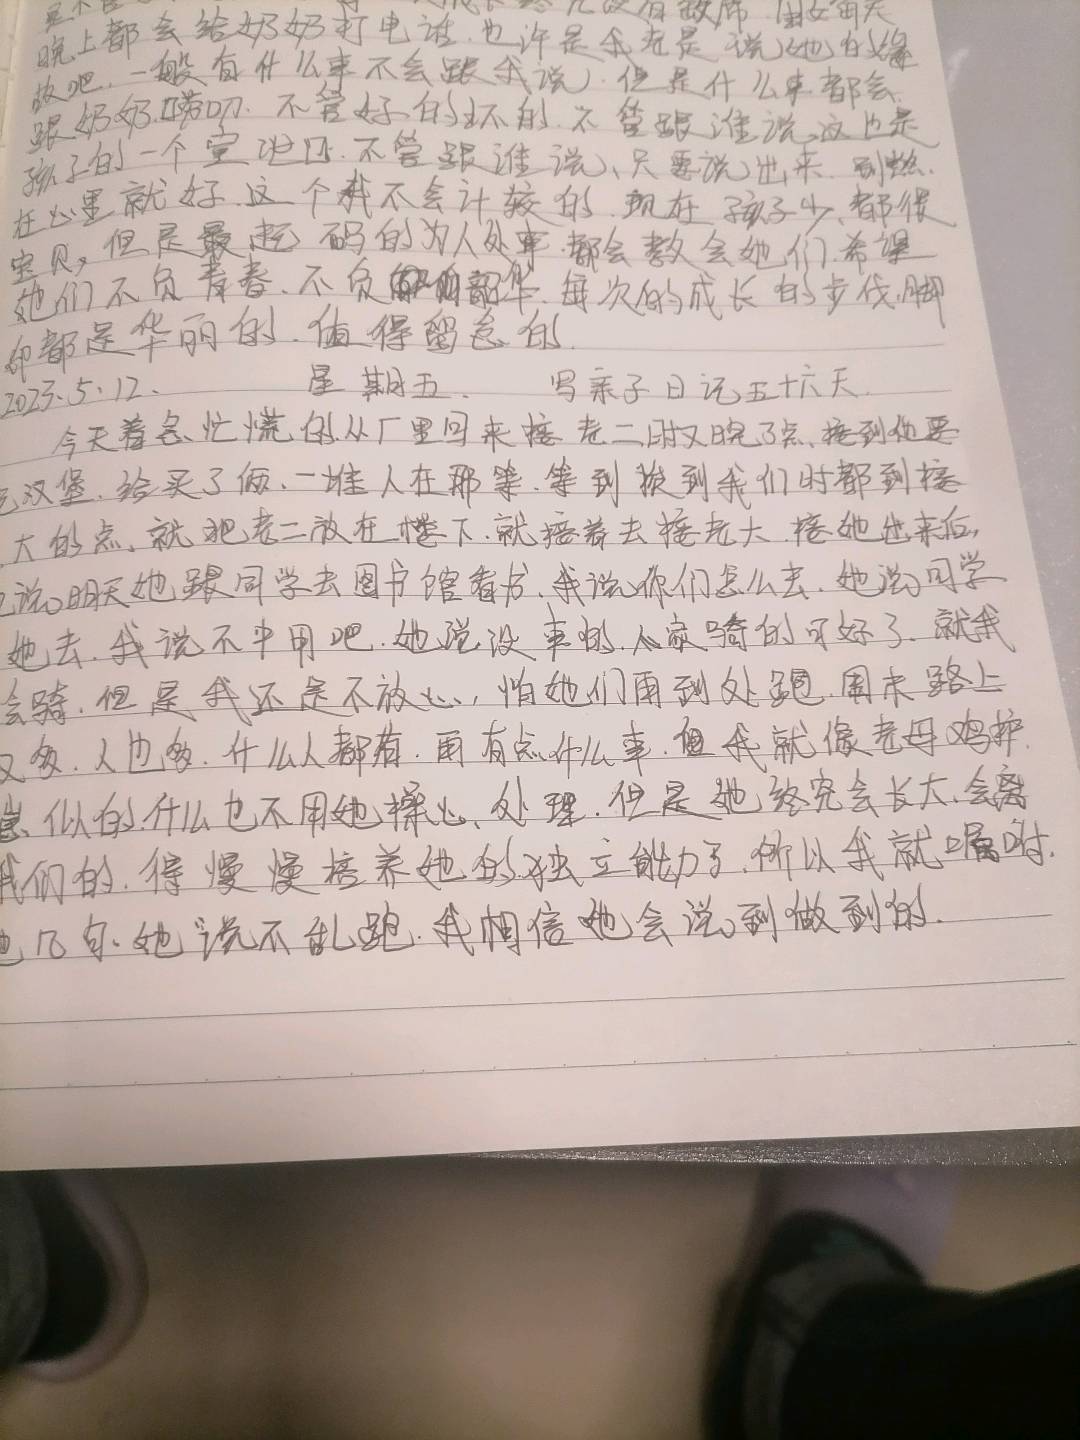 晚上都会给奶奶打电话.也许是我老是说她的缘
故吧.一般有什么事不会跟我说.但是什么事都会
跟奶奶唠叨.不管好的坏的.不管跟谁说.这也是
孩子的一个宣泄口.不管跟谁说、只要说出来.别憋.
在心里就好.这个我不会计较的.现在孩子少.都很
宝贝,但是最起码的为人处事.都会教会她们.希望
她们不负青春.不负韶华.每次的成长的步伐.脚
印都是华丽的.值得留念的.
2023.5.12. 星期五. 写亲子日记五十六天.
今天着急忙慌的从厂里回来接老二时又晚了点、接到他要
吃汉堡.给买了俩.一堆人在那等.等到挨到我们时都到接
大的点、就把老二放在楼下.就接着去接老大.接她出来后,
说明天她跟同学去图书馆看书.我说你们怎么去.她说同学
她去.我说不中用吧.她说没事的.人家骑的可好了.就我
会骑.但是我还是不放心,怕她们再到处跑.周末路上
又多.人也多.什么人都有.再有点什么事.但我就像老母鸡护.
崽、似的.什么也不用她操心、处理.但是她终究会长大、会离
我们的.得慢慢培养她的独立能力了.所以我就嘱咐.
她几句.她说不乱跑.我相信她会说到做到的.